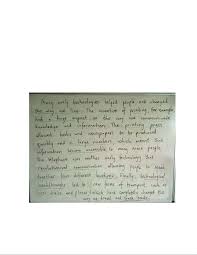 Many early technologies helped people and changed
the way we live. The invention of printing for example
had a huge impact on the way we communicate
knowledge and information. The printing press
allowed books and newspapers to be produced
quickly and in large numbers, which meant that
information became accessible to many more people.
The telephone was another early technology that
revolutionised communication allowing people to
together from different locations. Finally, technological
breakthroughs led to new forms of transport, such as
and planes which have completely changed the
way we travel and trade